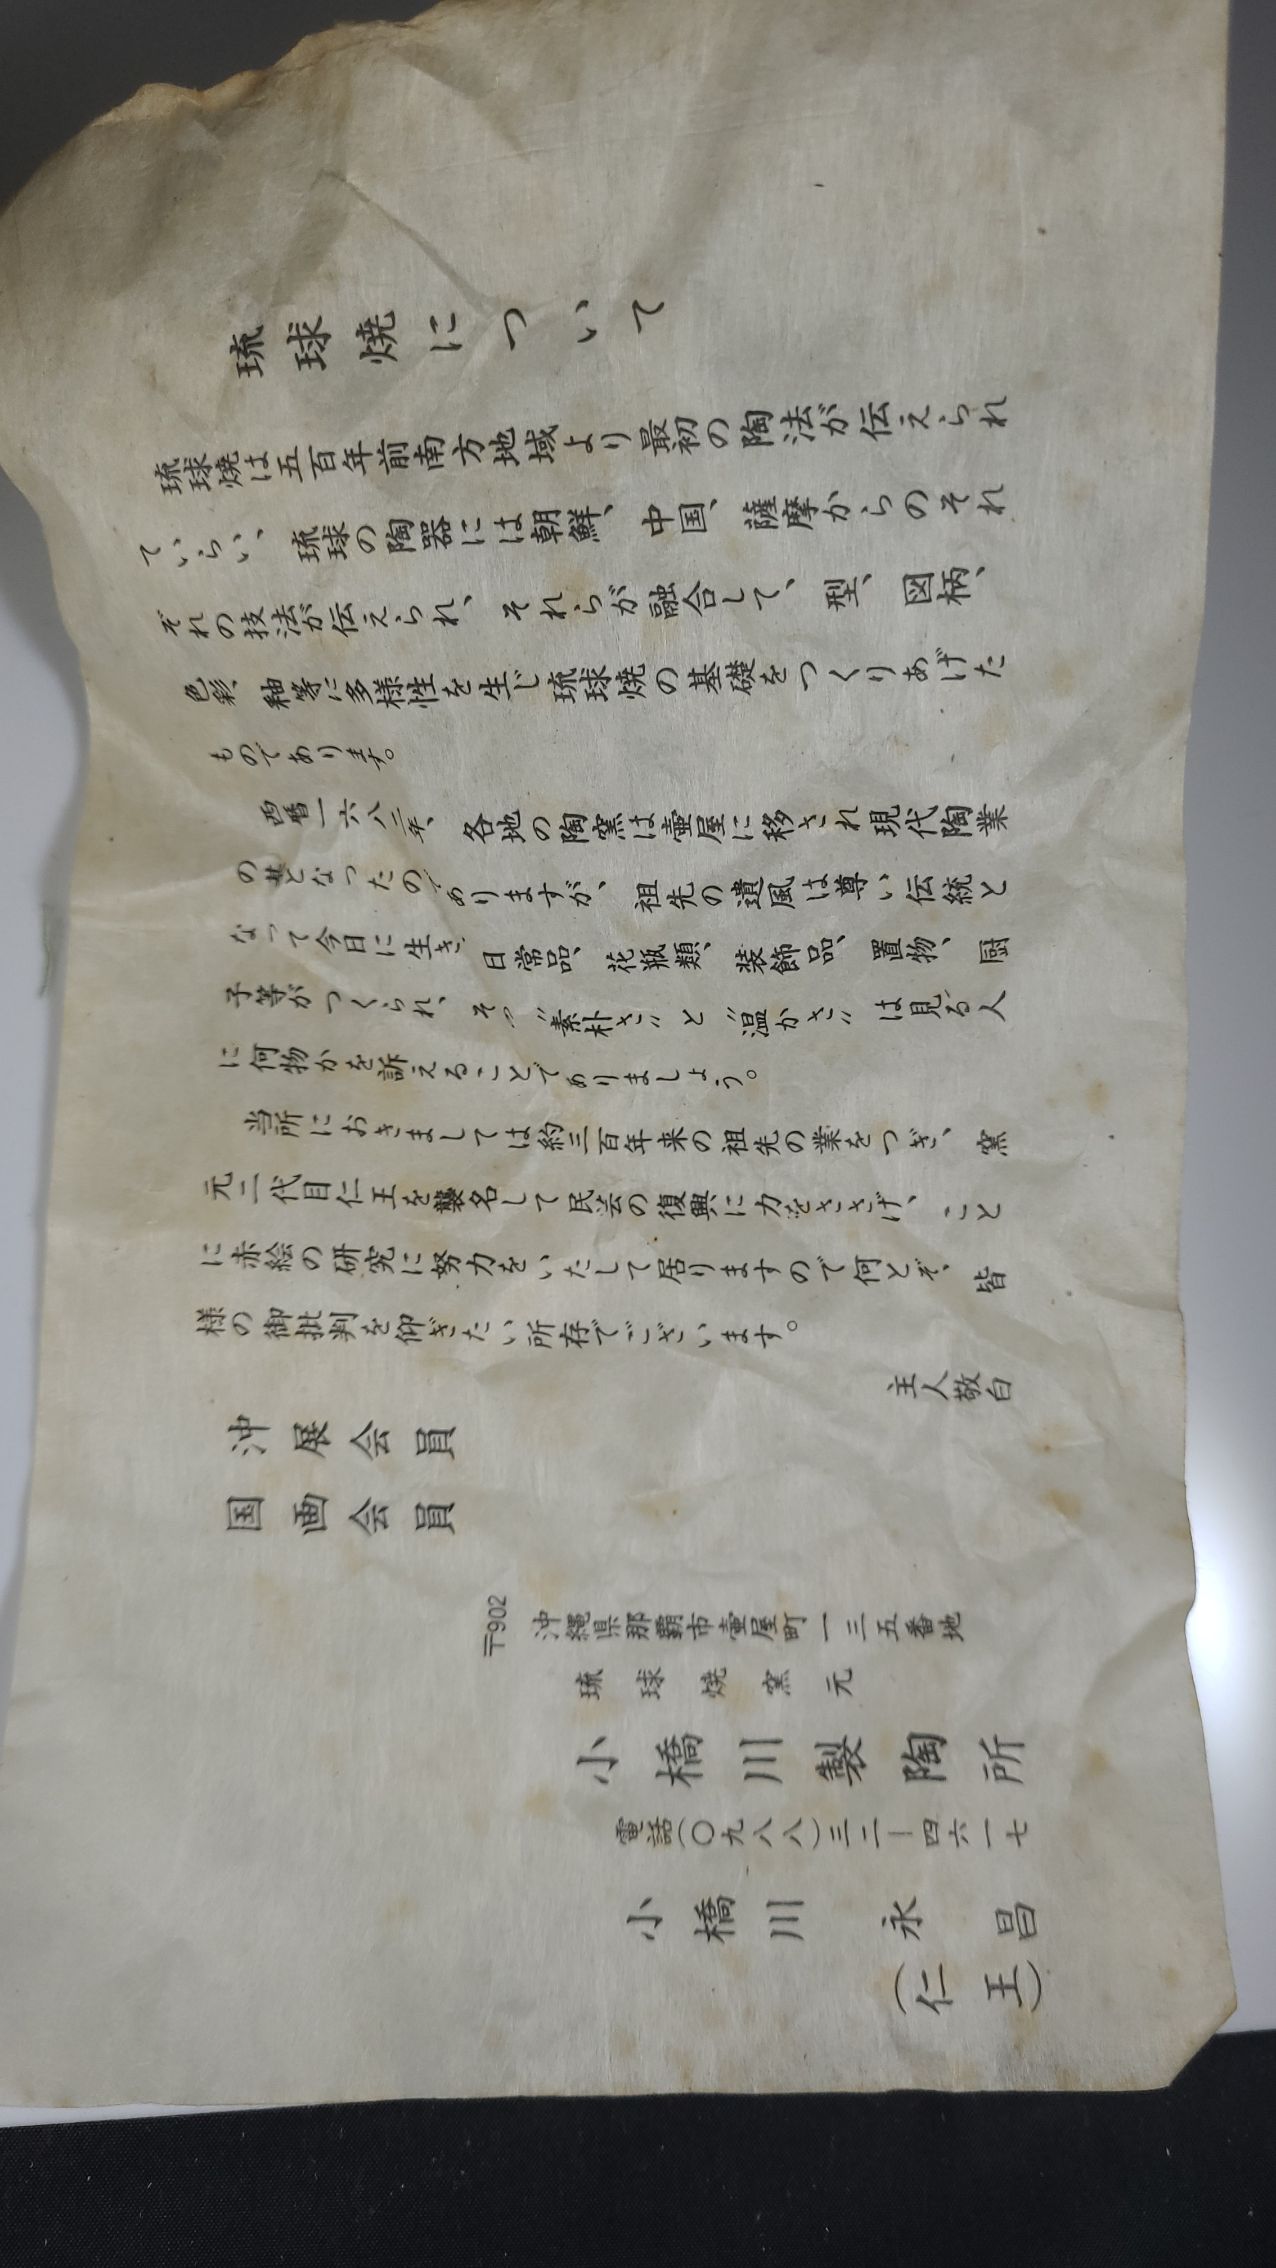 琉球焼について
琉球焼は五百年前南方地域より最初の陶法が伝えられ
ていらい、琉球の陶器には朝鮮、中国、薩摩からのそれ
ぞれの技法が伝えられ、それらが融合して、型、図柄、
色彩、釉等に多様性を生じ琉球焼の基礎をつくりあげた
ものであります。
西暦一六八二年、各地の陶窯は壷屋に移され現代陶業
の基となったのでありますが、祖先の遺風は尊い伝統と
なって今日に生き日常品、花瓶類、装飾品、置物、厨
子等がつくられ、その〝素朴さ〟と〝温かさ〟は見る人
に何物かを訴えることでありましょう。
当所におきましては約三百年来の祖先の業をつぎ、窯
元二代目仁王を襲名して民芸の復興に力をささげ、こと
に赤絵の研究に努力をいたして居りますので何とぞ、皆
様の御批判を仰ぎたい所存でございます。
主人敬白
沖展会員
国画会員
〒902 沖縄県那覇市壷屋町一三五番地
琉球焼窯元
小橋川製陶所
電話(〇九八八)三二ー四六一七
小橋川永昌
(仁王)